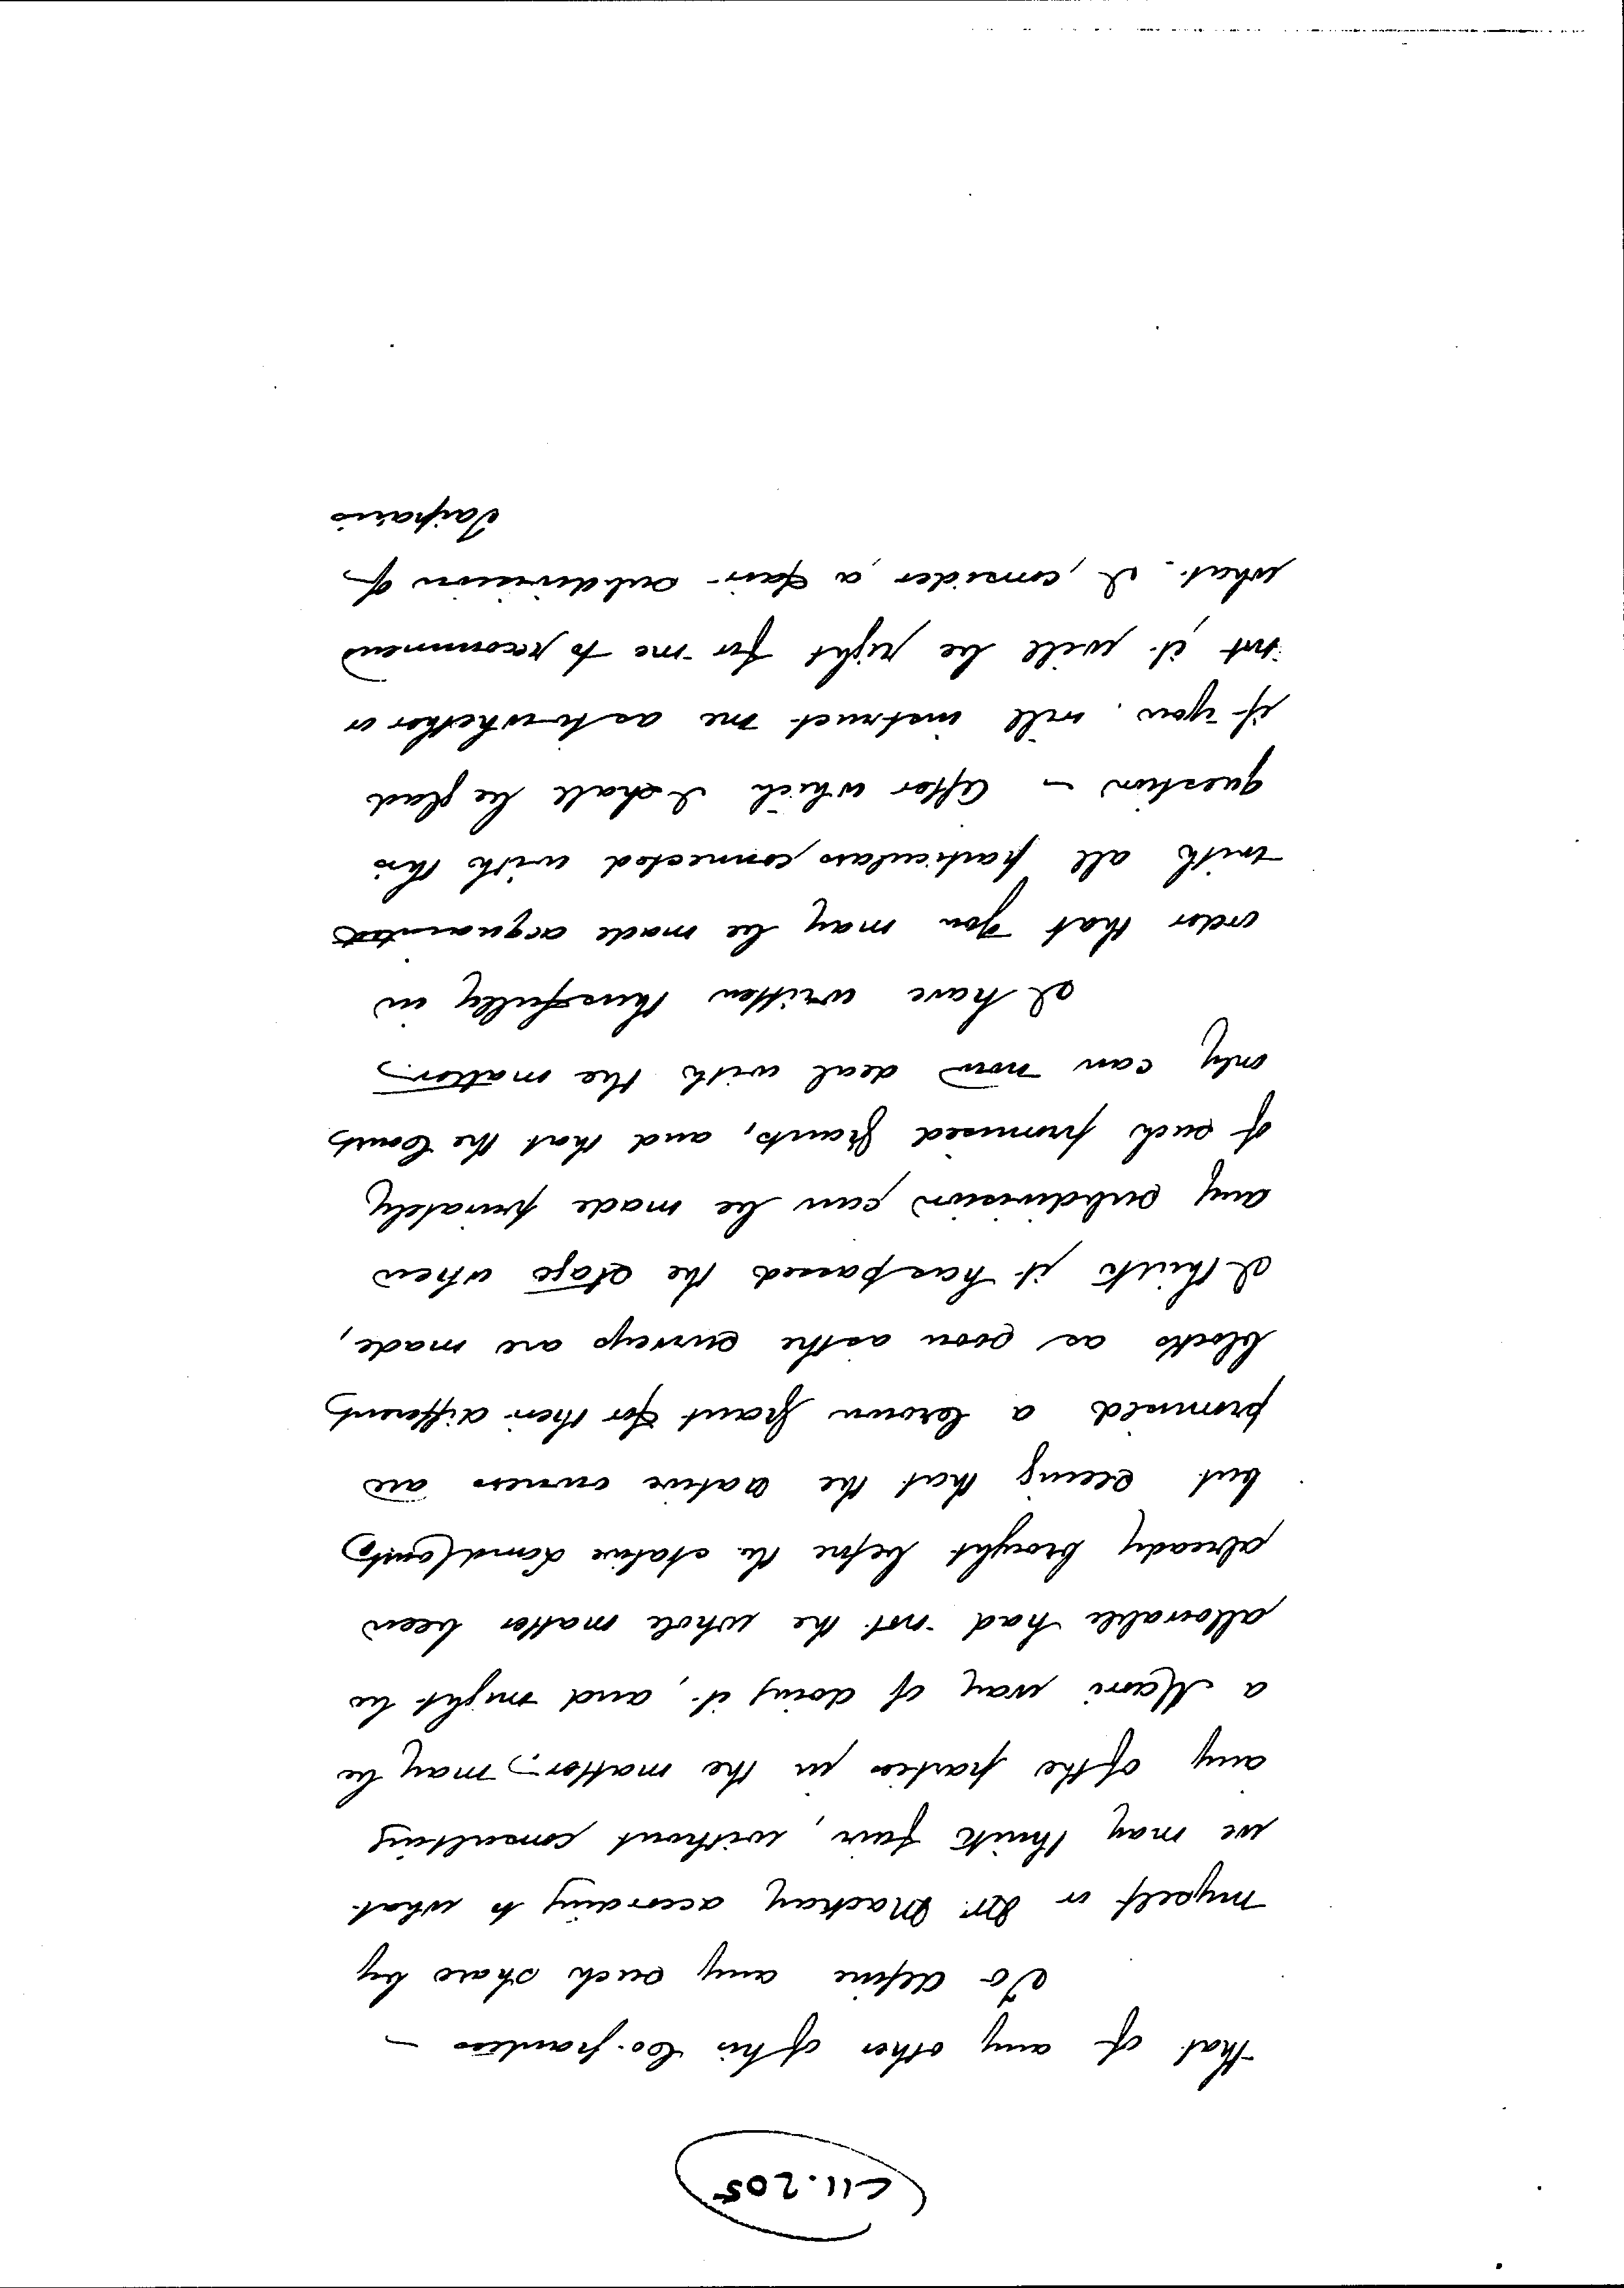 C11.205
that of any other of his Co-grantees —
To define any such share by
myself or Dr. Mackay according to what
we may think fair, without consulting
any of the parties in the matter; may be
a Maori way of doing it, and might be
allowable had not the whole matter been
already brought before the Native Land Courts
but seeing that the Native owners are
promised a Crown grant for their different
blocks as soon as the surveys are made,
I think it has passed the stage when
any subdivision can be made privately
of such promised grants, and that the Courts
only can now deal with the matter.
I have written thus fully in
order that you may be made acquainted
with all particulars connected with this
question — After which I shall be glad
if you will instruct me as to whether or
not it will be right for me to recommend
what I consider a fair subdivision of
Taipari's